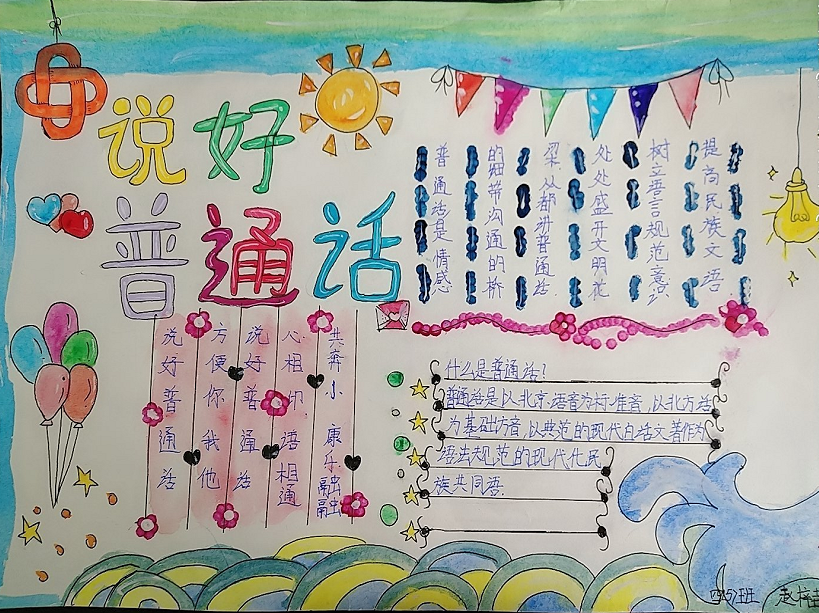 说好
普通话
普通话是情感
的纽带沟通的桥
梁处都讲普通话
处处盛开文明花
树立语言规范意识
提高民族文语
说好普通话
方便你我他
说好普通话
心相印 语相通
共奔小康乐融融
什么是普通话?
普通话是以北京语音为标准音,以北方话
为基础方音,以典范的现代白话文著作为
语法规范的现代化民
族共同语.
四(5)班